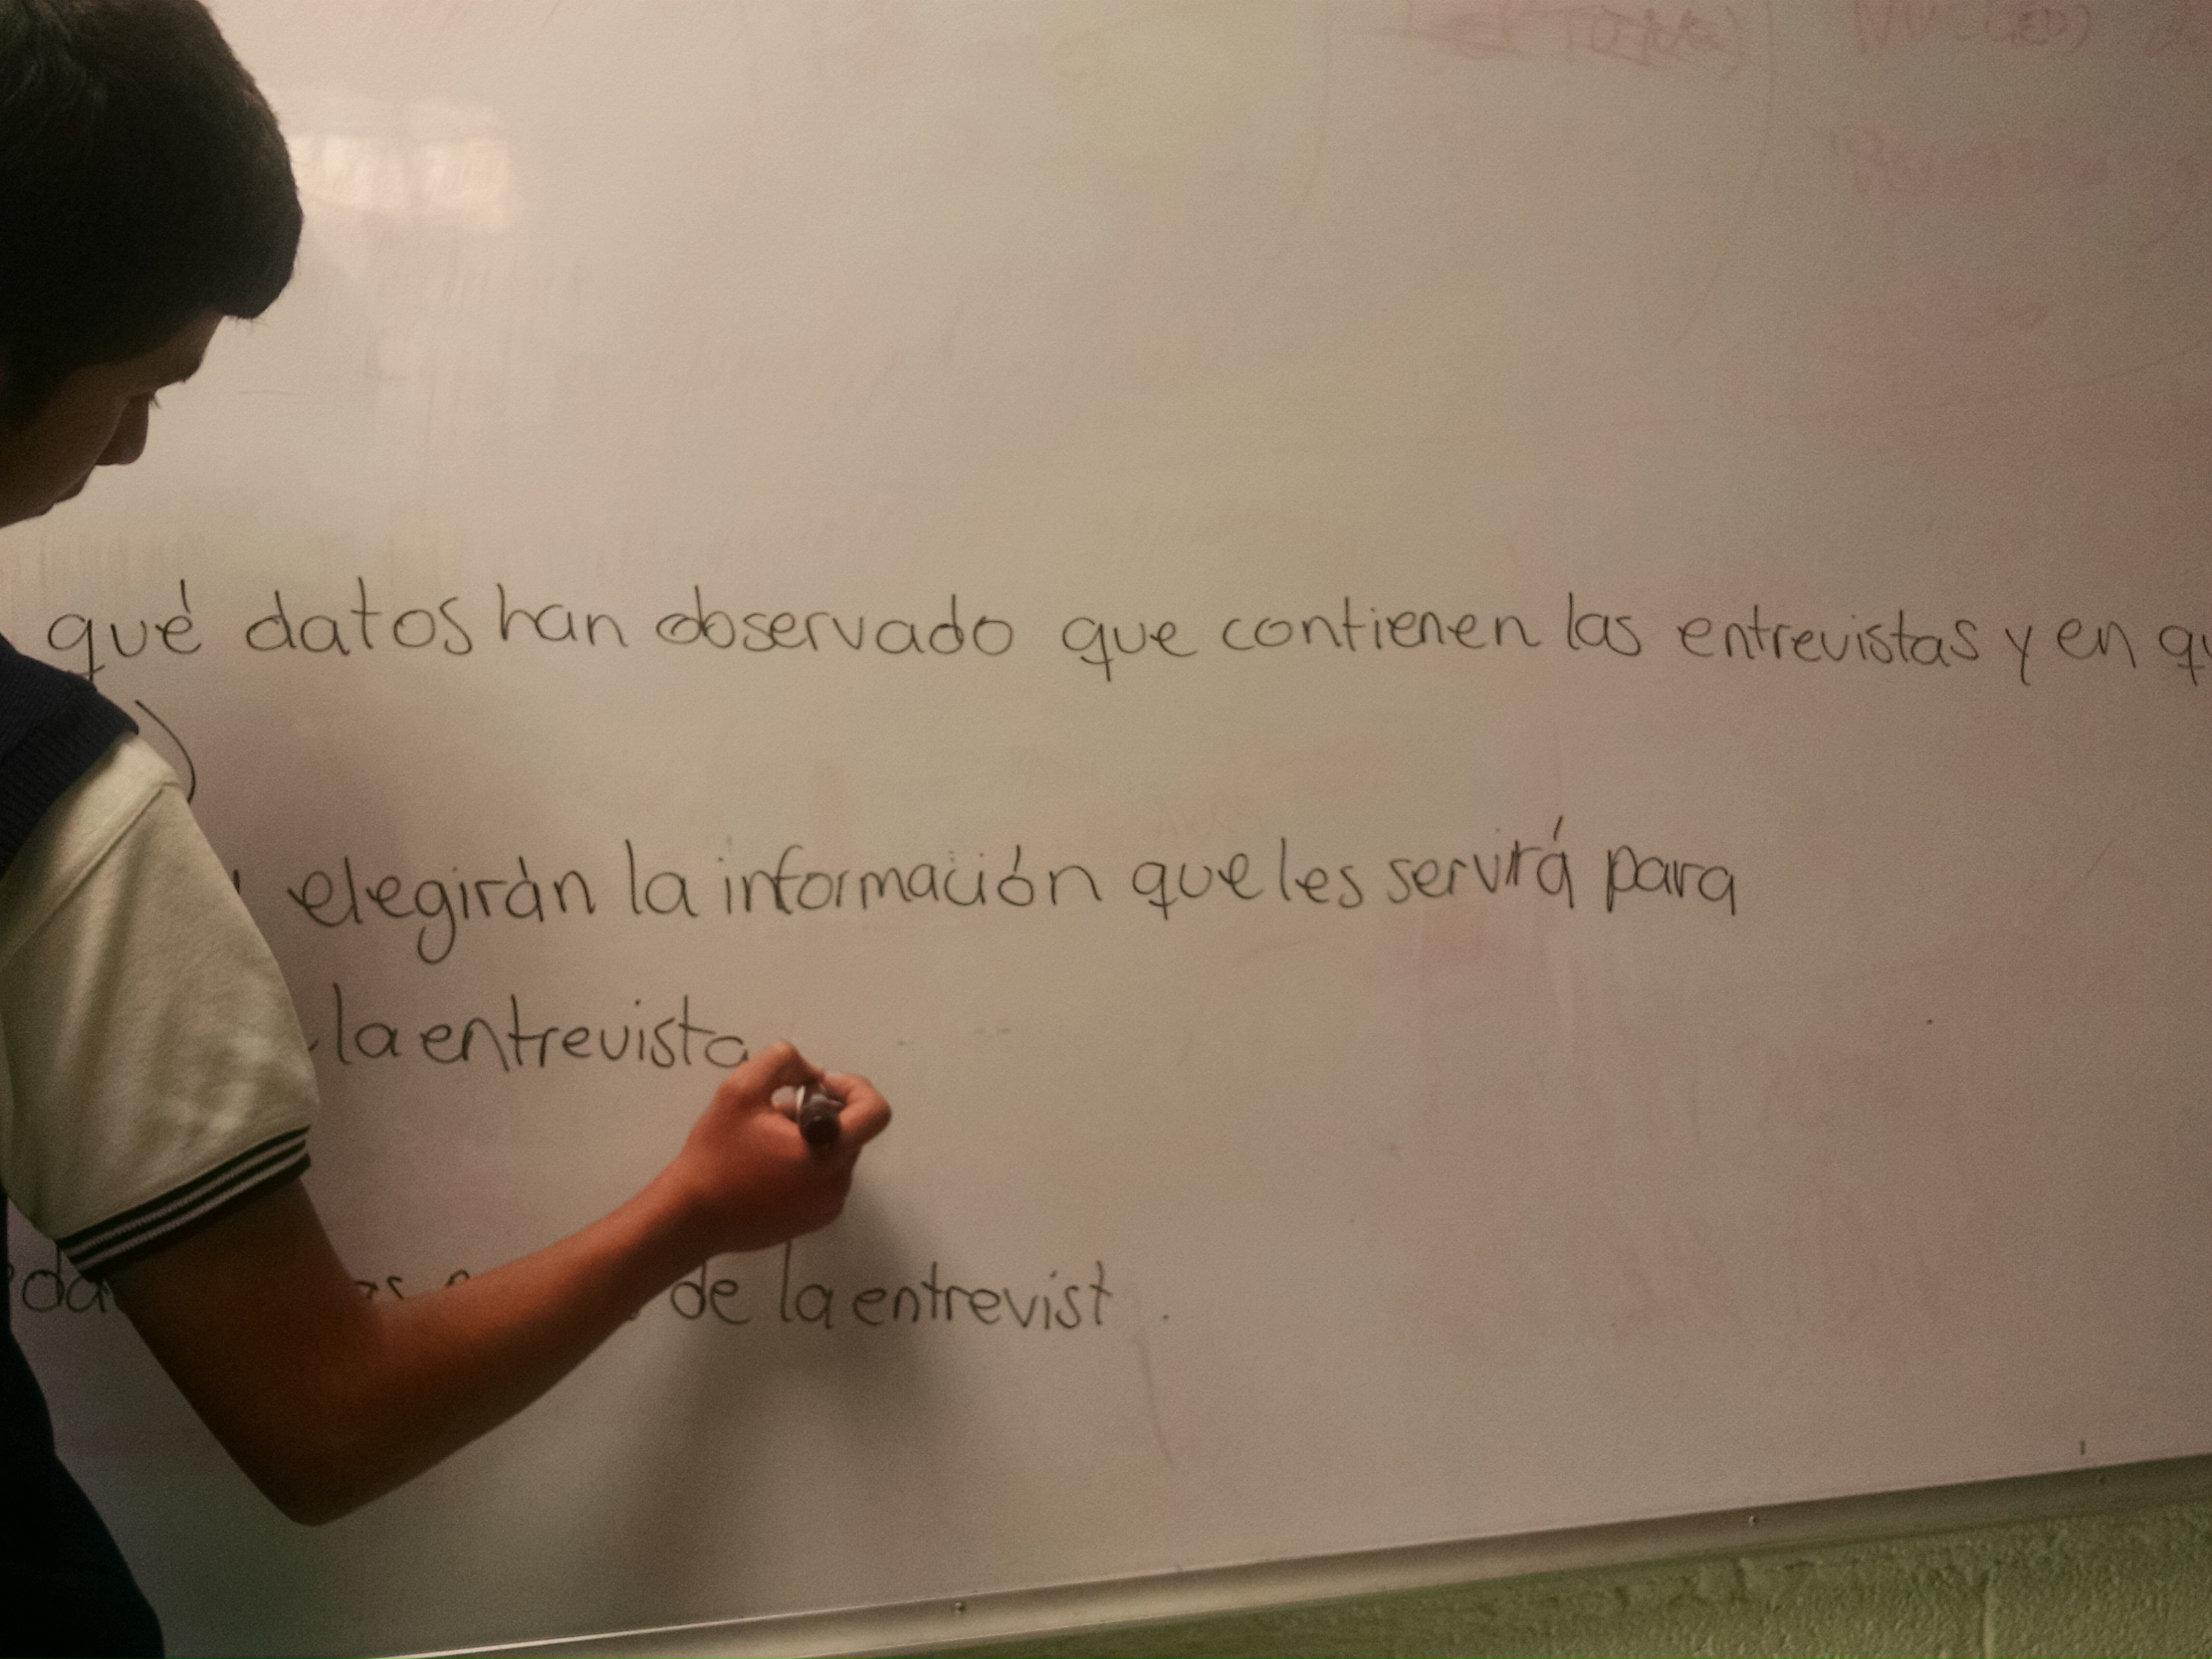 qué datos han observado que contienen las entrevistas y en qu
elegirán la información que les servirá para
la entrevista
de la entrevist .